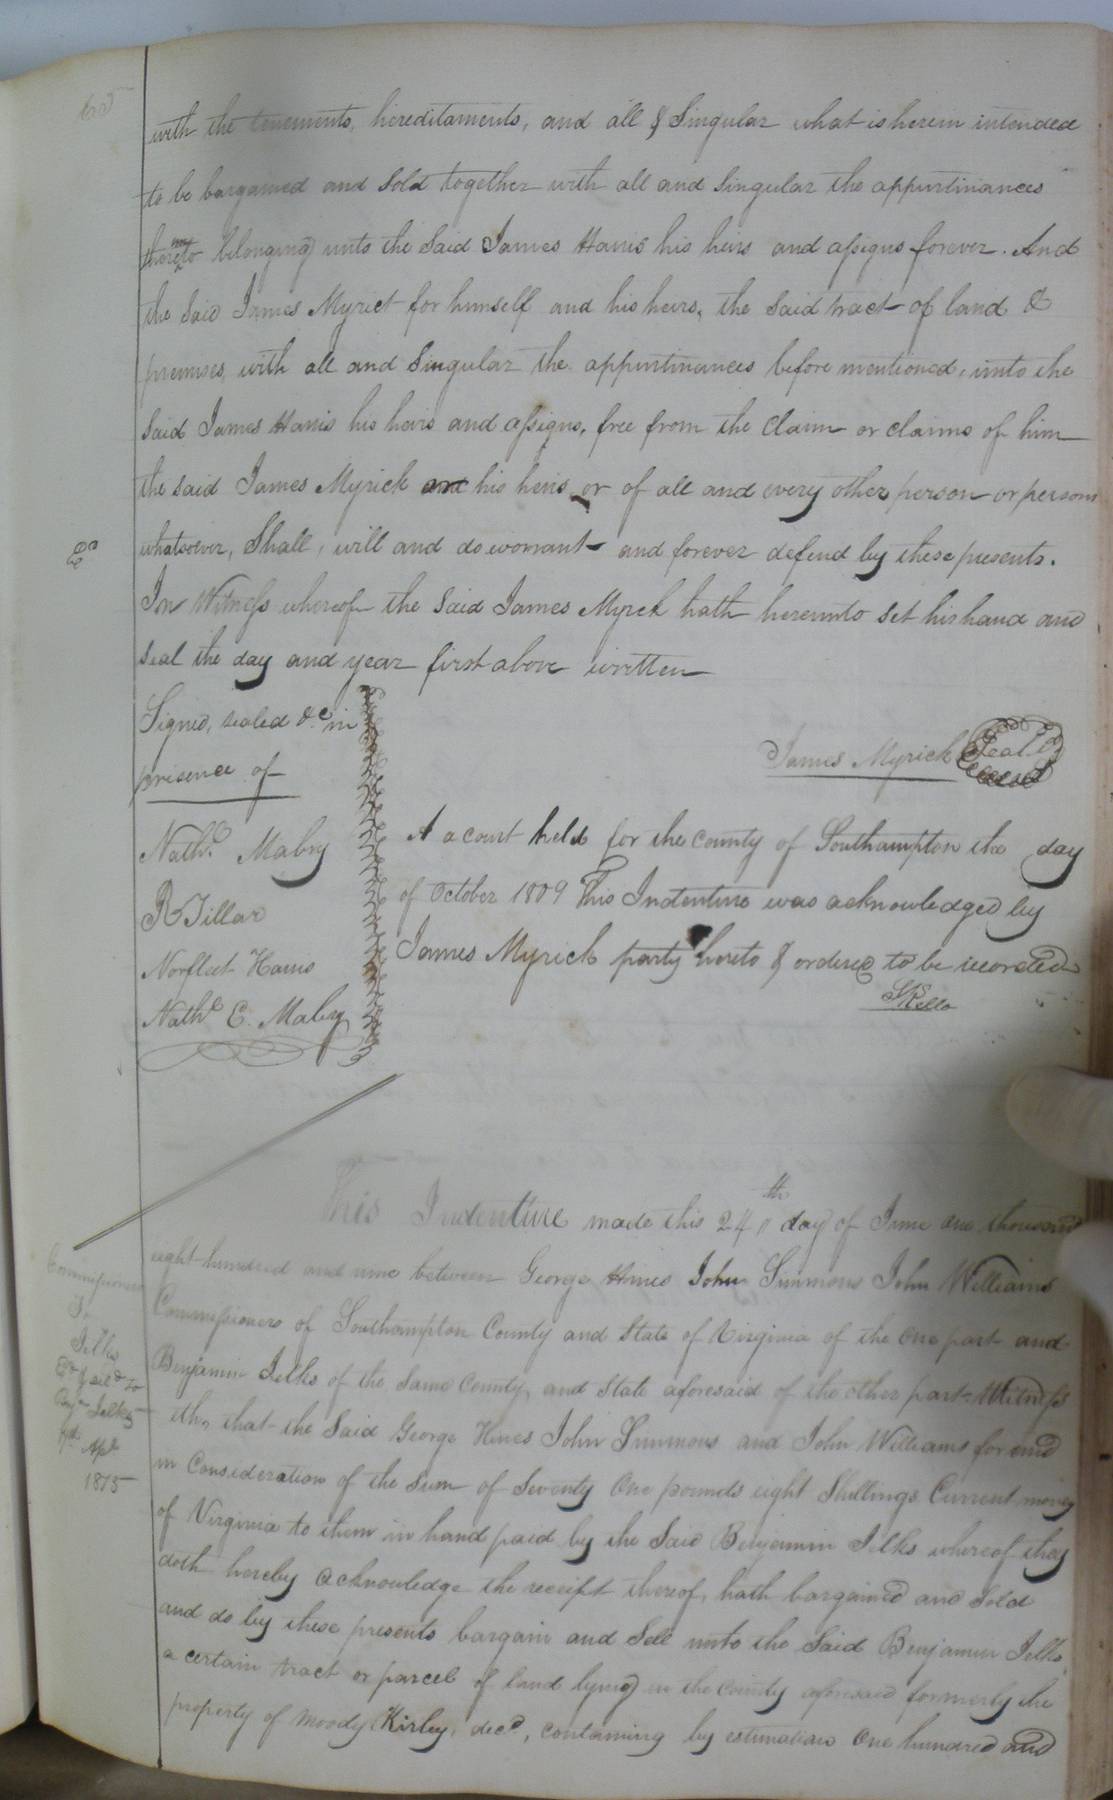 with the tenements, hereditaments, and all & Singular what is herein intended
to be bargained and Sold together with all and Singular the appurtinances
thereto belonging unto the Said James Harris his heirs and assigns forever. And
the Said James Myrick for himself and his heirs, the Said tract of land &
premises, with all and Singular the appurtinances before mentioned, unto the
Said James Harris his heirs and assigns, free from the Claim or claims of him
the said James Myrick and his heirs or of all and every other person or persons
whatsoever, Shall, will and do warrant and forever defend by these presents.
In Witness whereof the Said James Myrick hath hereunto set his hand and
seal the day and year first above written
Signed, sealed &c in
presence of
James Myrick Seal
Nathl. Mabry
R Tillar
Norfleet Harris
Nathl E. Mabry
A a court held for the County of Southampton the day
of October 1809 This Indenture was acknowledged by
James Myrick party hereto & ordered to be recorded
This Indenture made this 24th day of June one thousand
eight hundred and nine between George Hines John Simmons John Williams
Commissioners of Southampton County and State of Virginia of the One part and
Benjamin Jelks of the Same County and State aforesaid of the other part Witness
eth, that the Said George Hines John Simmons and John Williams for and
in Consideration of the Sum of Seventy One pounds eight Shillings Current money
of Virginia to them in hand paid by the Said Benjamin Jelks whereof they
doth hereby acknowledge the receipt thereof, hath bargained and Sold
and do by these presents bargain and Sell unto the Said Benjamin Jelks
a certain tract or parcel of land lying in the County aforesaid formerly the
property of Moody Kirby, decd, containing by estimation One hundred and
Commissioners
To
Jelks
Ed & deld to
Benj Jelks
Apl
1815